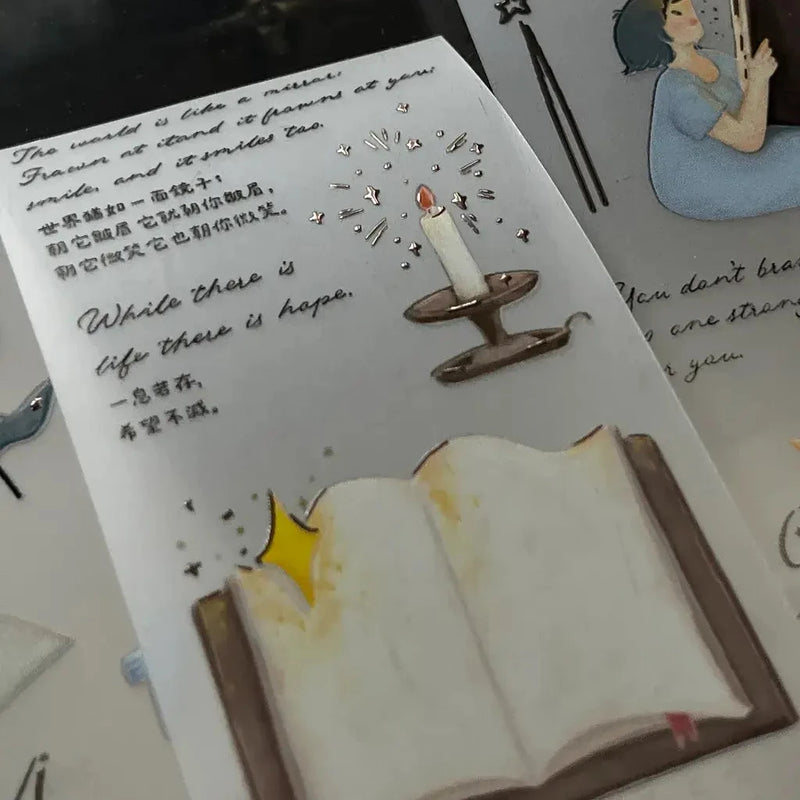 The world is like a mirror:
Frawn at itand it frawns at you;
smile, and it smiles too.
世界犹如一面镜子:
朝它皱眉它就朝你皱眉,
朝它微笑它也朝你微笑。
While there is
life there is hope.
一息若存,
希望不灭。
You don't
one strong
you.